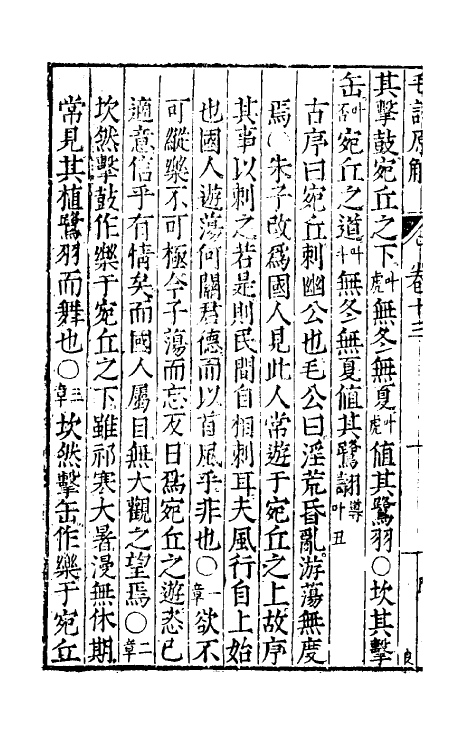 毛詩原解　卷十三
其擊鼓宛丘之下叶虎無冬無夏叶虎值其鷺羽〇坎其擊
缶叶否宛丘之道叶斗無冬無夏值其鷺翿導叶丑
古序曰宛丘刺幽公也毛公曰淫荒昏亂游蕩無度
焉〇朱子改為國人見此人常遊于宛丘之上故序
其事以刺之若是則民間自相刺耳夫風行自上始
也國人遊蕩何關君德而以首風乎非也〇一章欲不
可縱樂不可極今子蕩而忘反日為宛丘之遊恣已
適意信乎有情矣而國人屬目無大觀之望焉〇二章
坎然擊鼓作樂于宛丘之下雖祁寒大暑漫無休期
常見其植鷺羽而舞也〇三章坎然擊缶作樂于宛丘